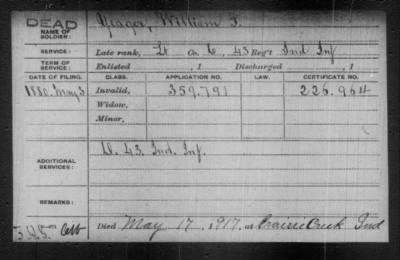 DEAD
NAME OF SOLDIER: Yeager, William F.
SERVICE: Late rank, Lt Co. C, 43 Reg't Ind Inf
TERM OF SERVICE: Enlisted , 1 Discharged , 1
DATE OF FILING. CLASS. APPLICATION NO. LAW. CERTIFICATE NO.
1880, May 3 Invalid, 359.791 226.964
Widow,
Minor,
ADDITIONAL SERVICES: 43 Ind. Inf.
REMARKS:
Died May 17, 1917, at Prairie Creek Ind